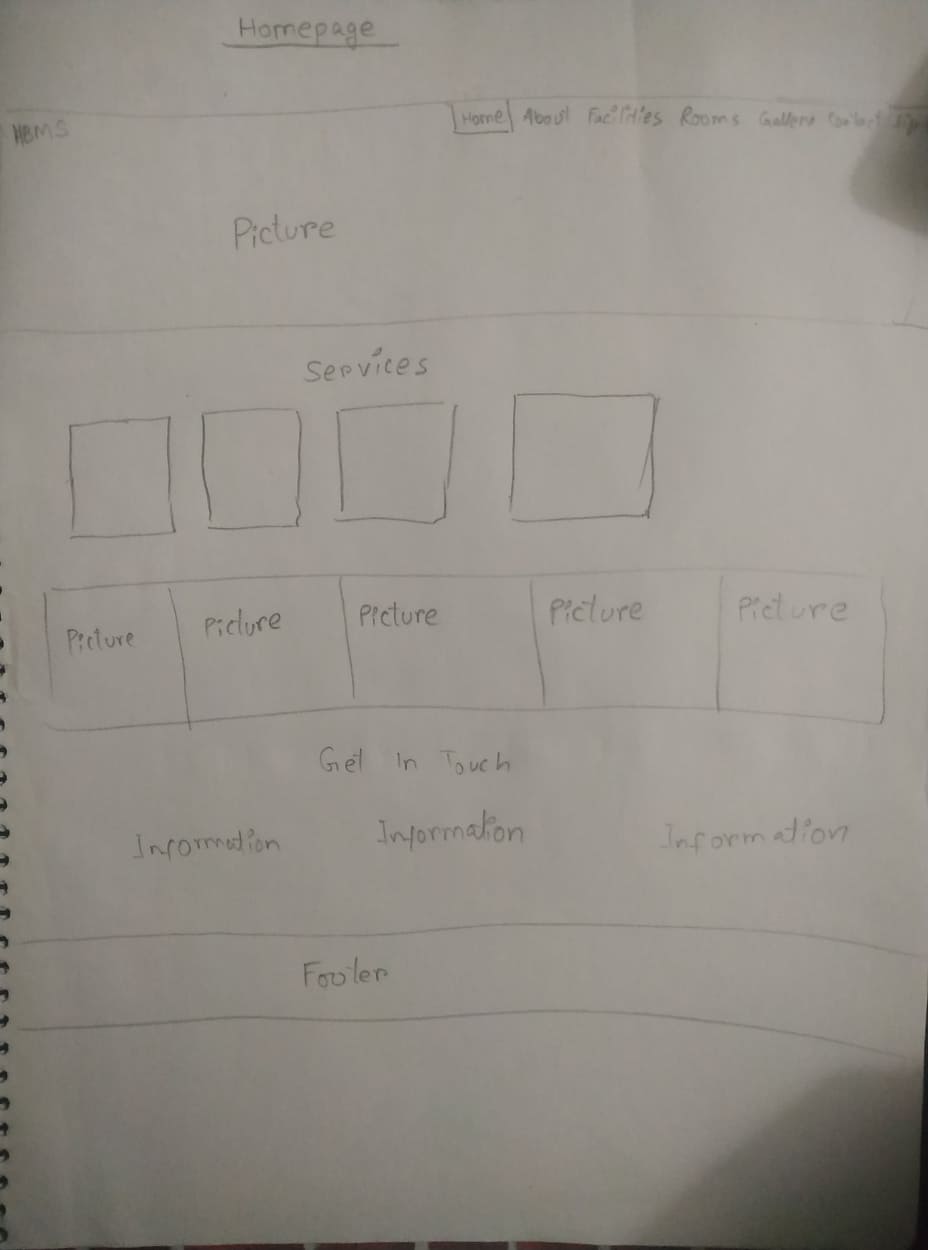 Homepage
HBMS Home About Facilities Rooms Gallery Contact
Picture
Services
Picture Picture Picture Picture Picture
Get In Touch
Information Information Information
Footer